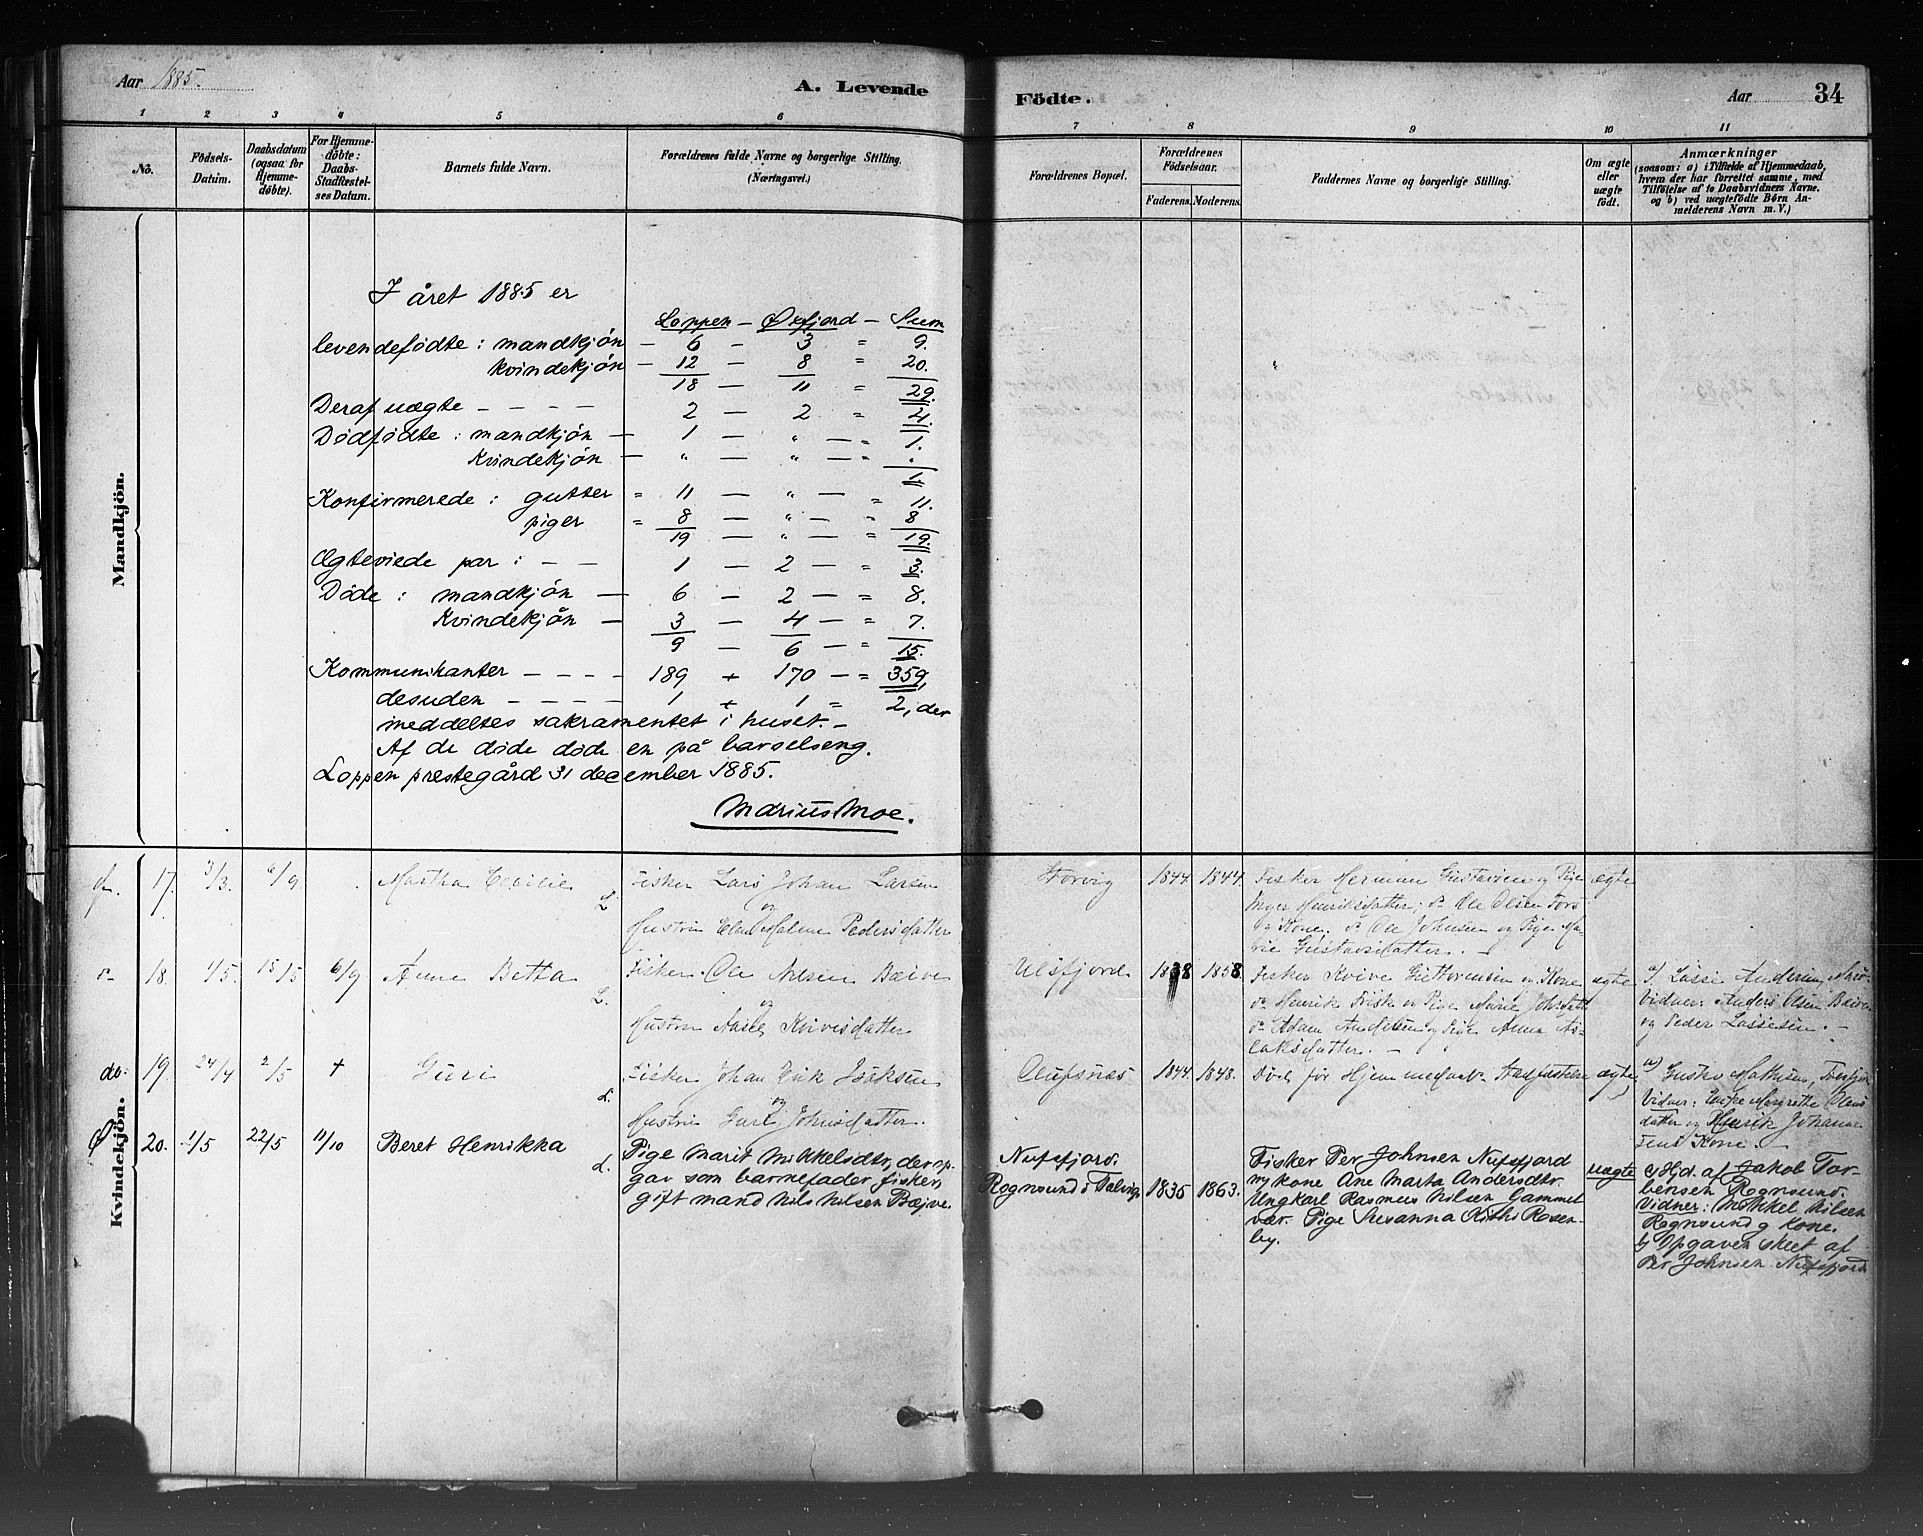 Aar 1885.
A. Levende
Födte.
Aar
34
1 2 3 4 5 6 7 8 9 10 11
No.
Födsels-
Datum.
Daabsdatum
(ogsaa for
Hjemme-
döbte).
For Hjemme-
döbte:
Daabs-
Stadfæstel-
ses Datum.
Barnets fulde Navn.
Forældrenes fulde Navne og borgerlige Stilling.
(Næringsvei.)
Forældrenes Bopæl.
Forældrenes
Födselsaar.
Faderens. Moderens.
Faddernes Navne og borgerlige Stilling.
Om ægte
eller
uægte
födt.
Anmærkninger
(saasom: a) i Tilfælde af Hjemmedaab,
hvem der har forrettet samme, med
Tilföielse af to Daabsvidners Navne.
og b) ved uægtefödte Börn An-
melderens Navn m. V.)
Mandkjön.
I året 1885 er
Loppen – Øxfjord – Sum
levendefødte : mandkjön – 6 – 3 = 9.
kvindekjön – 12 – 8 = 20.
18 – 11 = 29.
Deraf uægte – – – – 2 – 2 = 4.
Dödfödte : mandkjön – 1 – " – = 1.
Kvindekjön – " – " – = "
1.
Konfirmerede : gutter = 11 – " – = 11.
piger = 8 – " – = 8
19 – " – = 19.
Ægteviede par : – – 1 – 2 – = 3.
Døde : mandkjön – 6 – 2 – = 8.
Kvindekjön – 3 – 4 – = 7.
9 – 6 – = 15.
Kommunikanter – – – – 189 + 170 – = 359,
desuden – – – – 1 + 1 = 2, der
meddeltes sakramentet i huset. –
Af de døde døde en på barselseng.
Loppen præstegård 31 december 1885.
Marius Moe.
Kvindekjön.
17. 3/3. 6/9. Martha Cecilie L. Fisker Lars Johan Larsen
og
Hustru Malene Pedersdatter
Storvig 1844. 1844. Fisker Herman Gustavsen og Pige
Inger Henriksdatter; Ole Olsen
og Kone. Ole Johnsen og Pige Ma-
rie Gustavsdatter. –
ægte
18. 1/5. 15/5 6/9 Anne Betta L. Fisker Ole Nilsen Bæivi
og
Hustru Kvivesdatter
Ulsfjord 1838 1858. Fisker Kvive og Kone
Henrik Frisk og Pige Marie
Adam Andersen og Pige Anna As-
laksdatter. –
ægte
a) Lasse Andersen
Vidner: Anders Olsen
og Peder Lassesen. –
do: 19. 24/4 2/5 + Guri L. Fisker Johan Erik Isaksen
og
Hustru Guri Johnsdatter.
Olufsnæs 1844. 1848. Død før Hjemmedaabs Stadfæstelse
ægte
a) Gustav Mathisen,
Vidner: Margrethe
datter og Henrik Johanne-
sens Kone. –
Ø 20. 1/5 22/5 11/10 Beret Henrikka L. Pige Marit Mikkelsdtr, der op-
gav som barnefader fisker,
gift mand Nils Nilsen Bæjve.
Nufsfjord.
Rognsund i Talvig 1835 1863.
Fisker Per Johnsen Nufsfjord
kone Ane Marta Andersdtr.
Ungkarl Rasmus Nilsen Gammel
vær. Pige Susanna Rosen-
by.
uægte
a) Hjd. af Jakob Tor-
bensen Rognsund.
Vidner: Mikkel Nilsen
Rognsund og kone.
b) Opgaven skeet af
Per Johnsen Nufsfjord